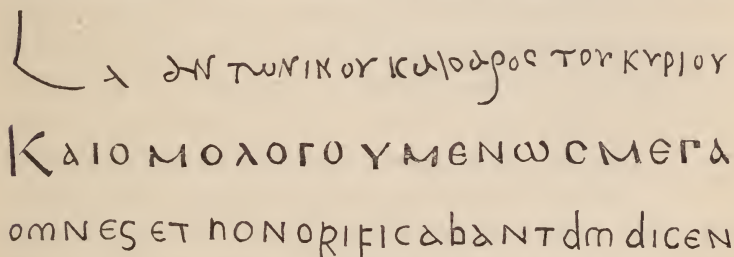 L α αντωνινου καισαρος του κυριου
ΚΑΙΟΜΟΛΟΓΟΥΜΕΝΩCΜΕΓΑ
omnes et honorificabant dm dicen